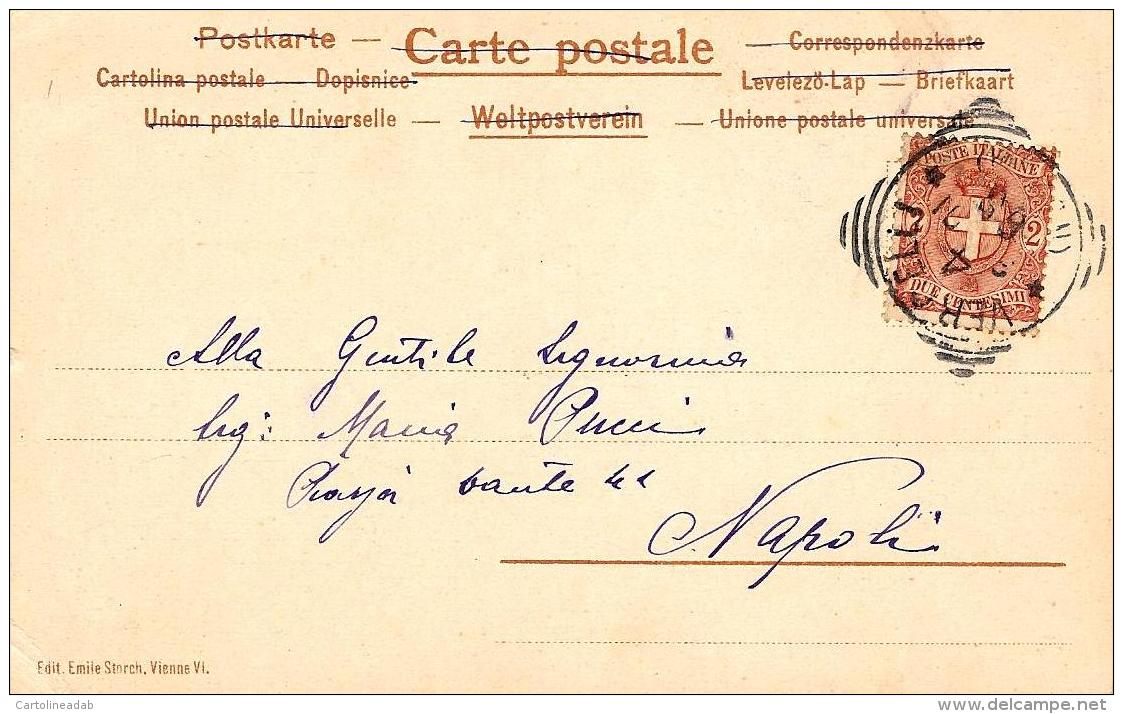 Postkarte — Carte postale — Correspondenzkarte
Cartolina postale — Dopisnice Levelező-Lap — Briefkaart
Union postale Universelle — Weltpostverein — Unione postale universale
POSTE ITALIANE
2
DUE CENTESIMI
Alla Gentile Signorina
Sig: Maria Pucci
Piazza Dante
Napoli
Edit. Emile Storch, Vienne VI.
Cartolineadab
www.delcampe.net